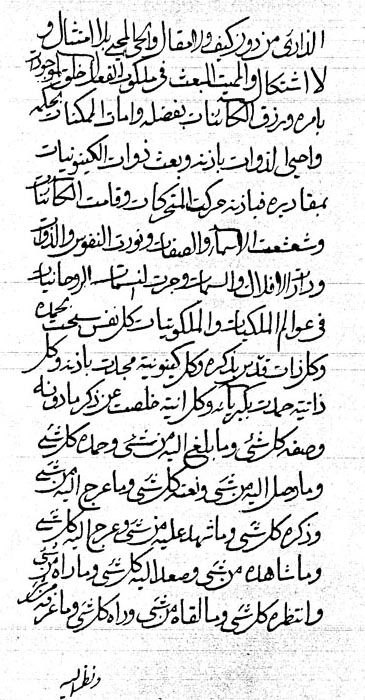 الذارئ من دون كيف ولا مقال والحي المحيي بلا امتثال و
لا اشتكال والمميت المبعث في ملكوت الفعال خلق الموجودات
بامره ورزق الكائنات بفضله وامات الممكنات بحكمه
واحيى الذوات باذنه وبعث ذوات الكينونيات
بمقاديره فباذنه حركت المتحركات وقامت الكائنات
وشعشعت الاسماء والصفات ونورت النفوس والذوات
ودارت الافلاك والسموات وجرت النسمات الروحانيات
في عوالم الملكيات والملكوتيات كل نفس سبحت بحمده
وكل ذات قدس بذكره وكل كينونية مجدت باذنه وكل
ذاتية حمدت بكبريائه وكل انية خلصت عن ذكر ما دونه
وصفه كل شئ وما بلغ اليه من شئ وحمده كل شئ
وما وصل اليه من شئ ونعته كل شئ وما عرج اليه من شئ
وذكره كل شئ وما شهد عليه من شئ وعرج اليه كل شئ
وما شاهده من شئ وصعد اليه كل شئ وما راه من شئ
وانتظره كل شئ وما لقاه من شئ وراه كل شئ وما عرفه
ونظر اليه